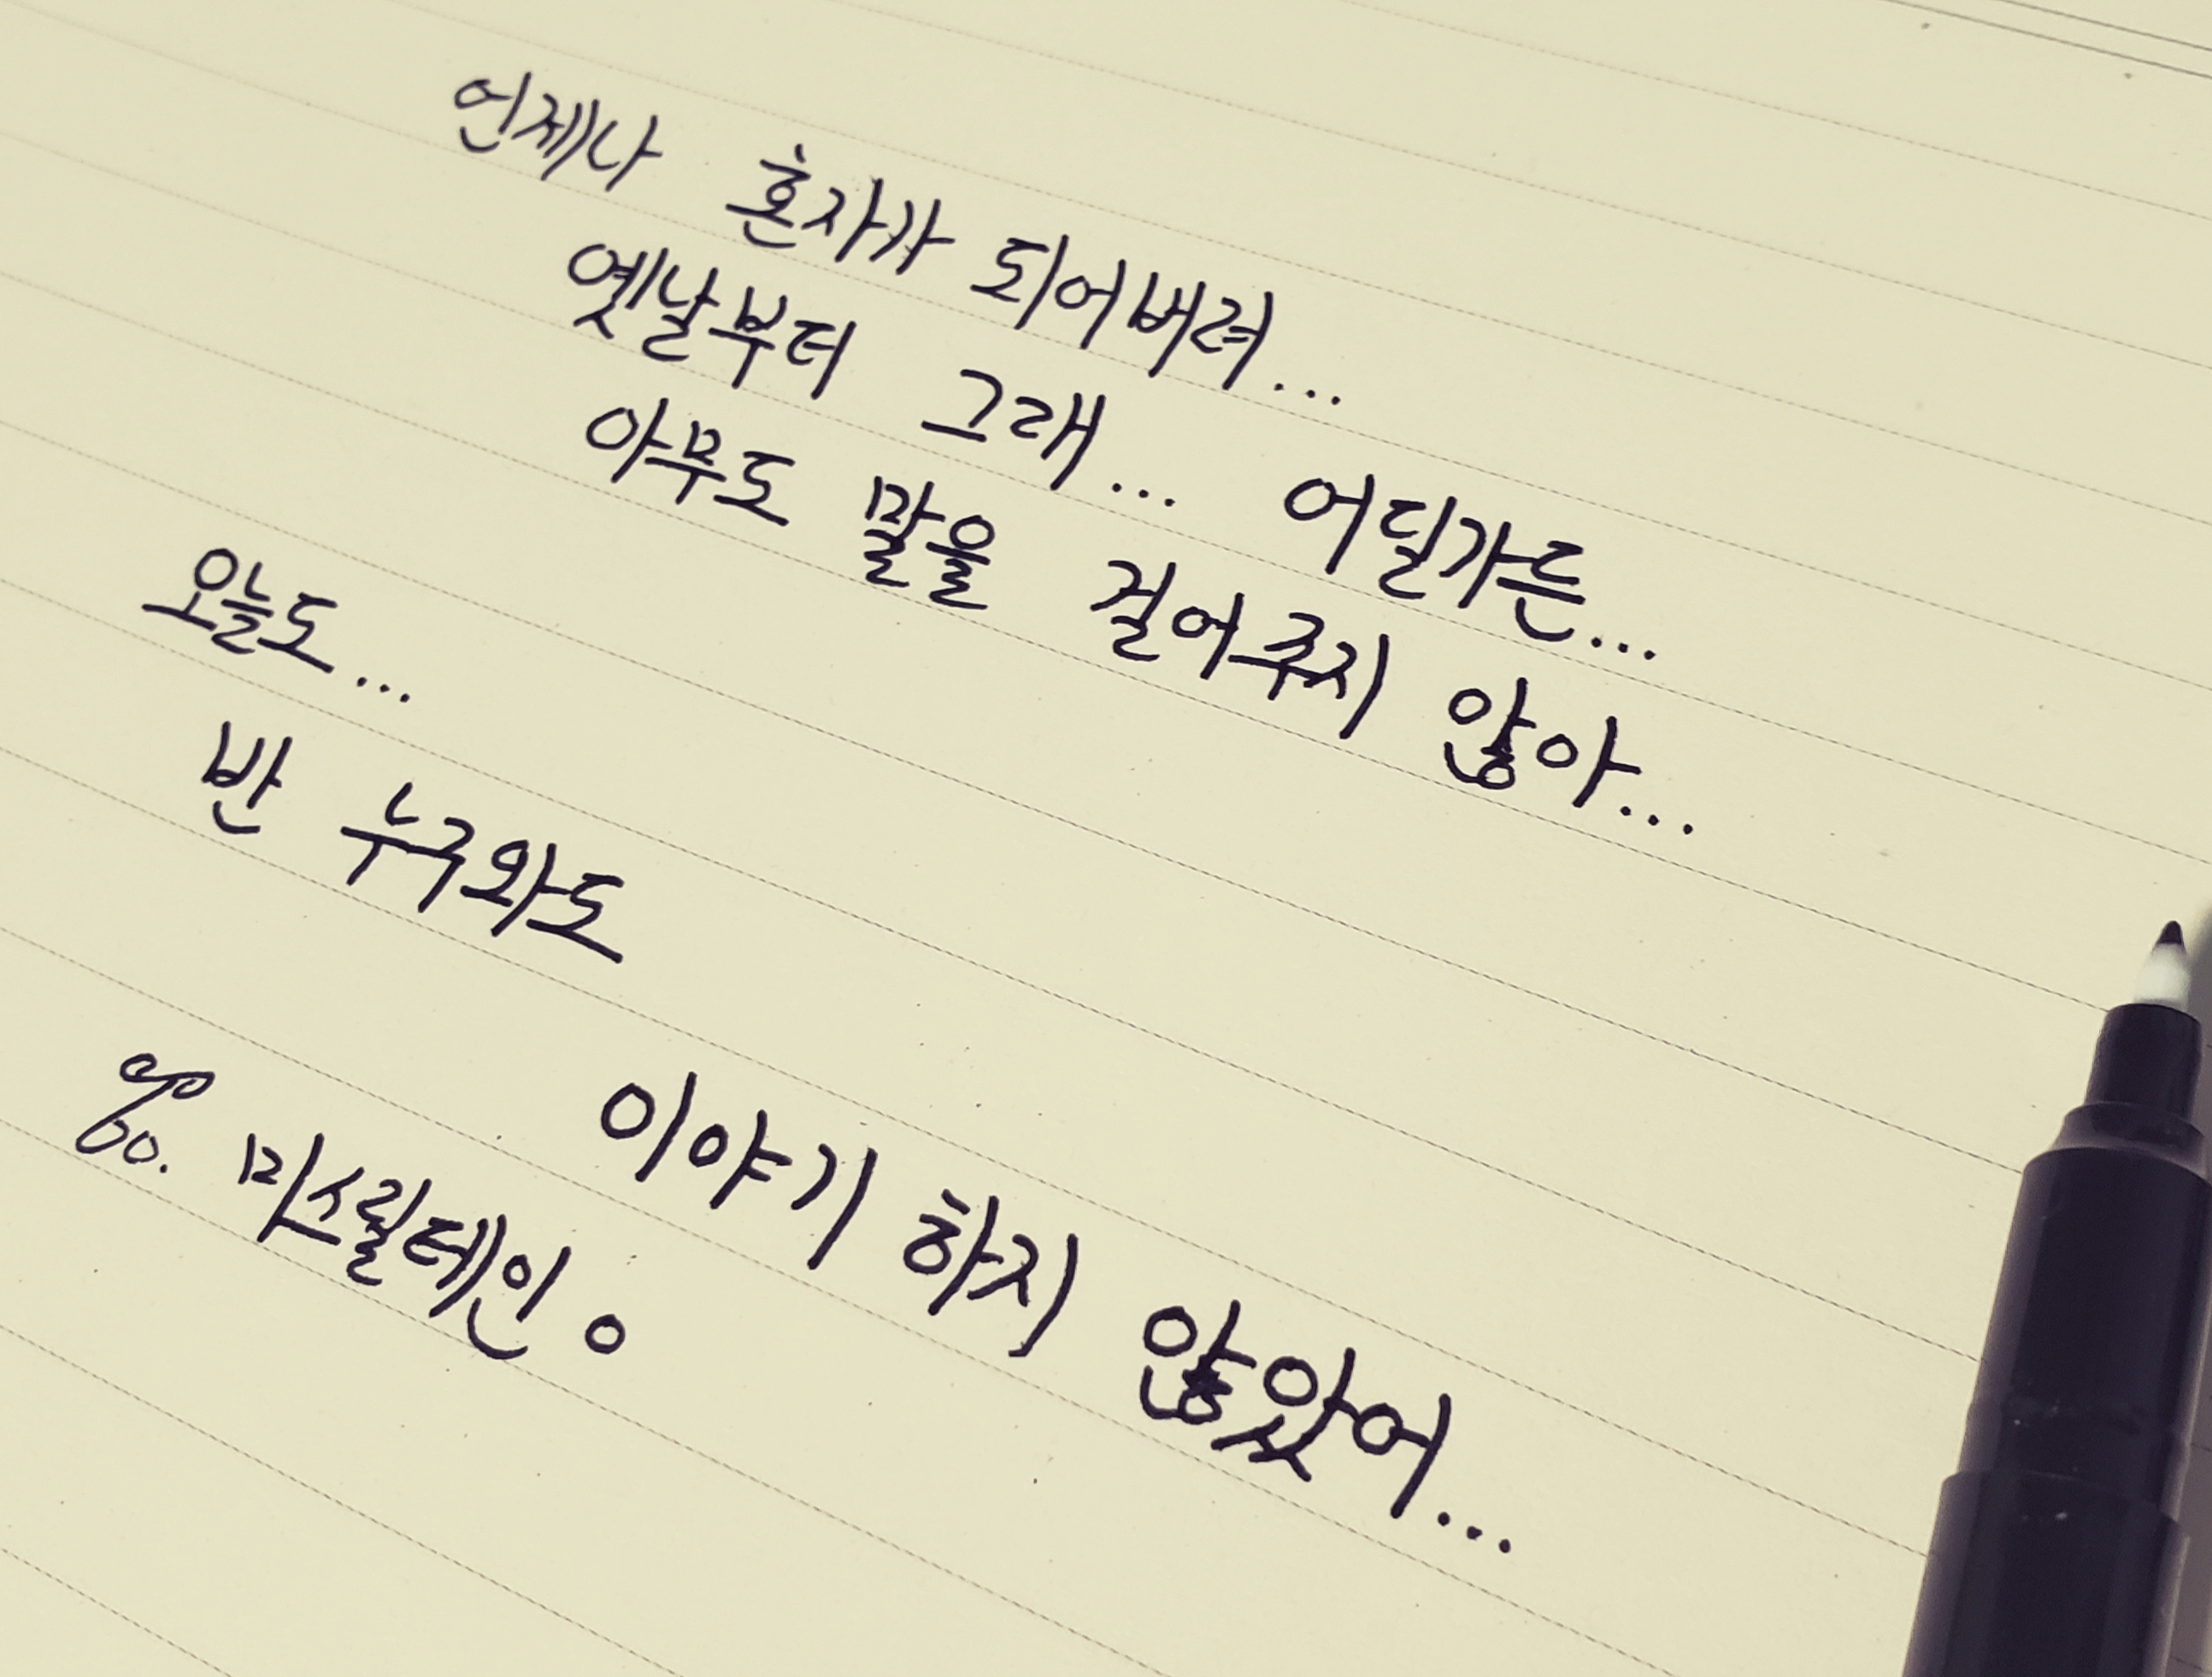 언제나 혼자가 되어버려...
옛날부터 그래... 어딜가든...
아무도 말을 걸어주지 않아...
오늘도...
반 누구와도
이야기 하지 않았어...
미스릴테인。